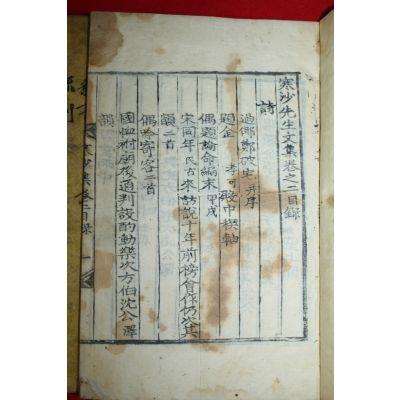 寒沙先生文集卷之二目錄
詩
過鄭破宅 并序
題金孝可殿中稧軸
偶題論命編末 甲戌
宋同年民古來訪說十年前榜會作仍次其
韻二首
偶吟寄客 二首
國恤祔廟後通判設酌動樂次方伯沈公澤
韻
寒沙集卷二目錄